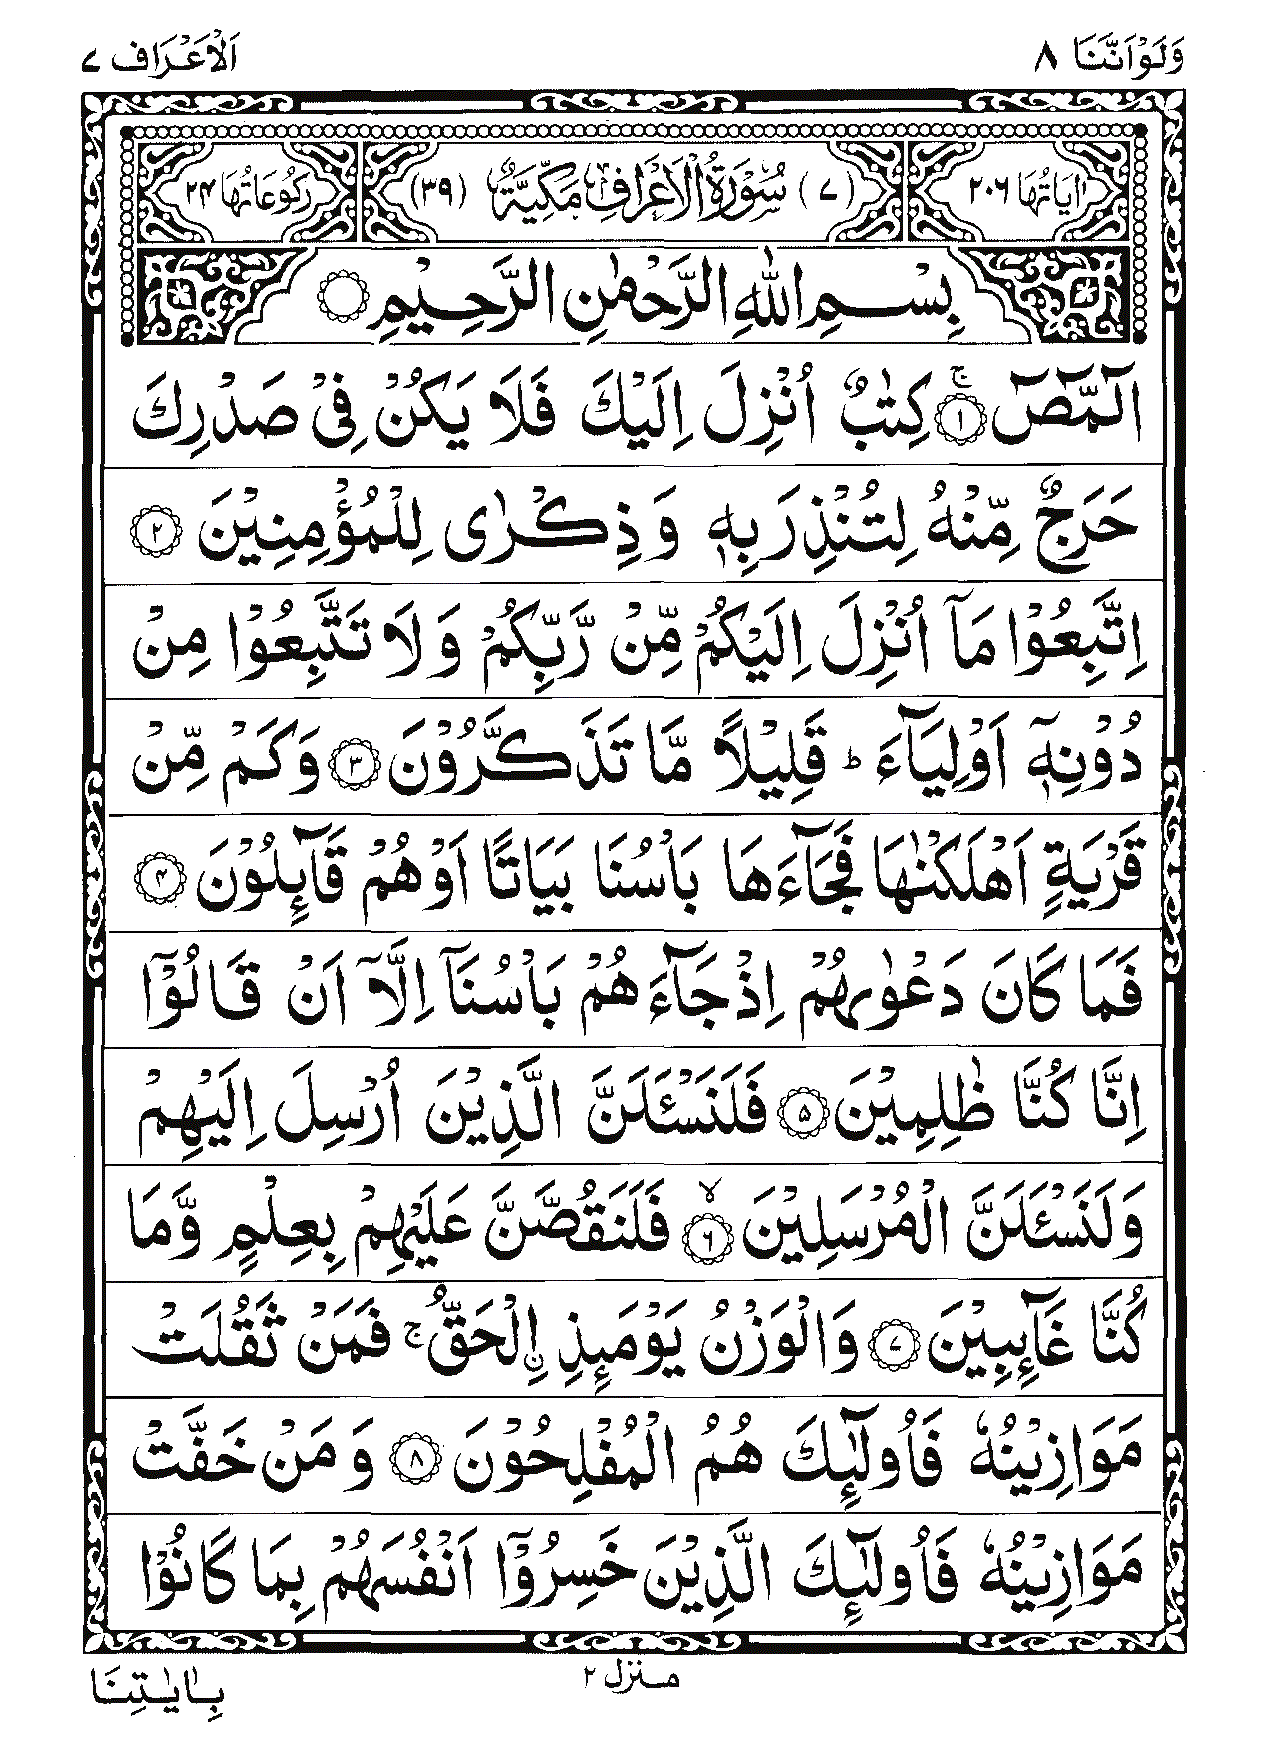 وَلَوْاَنَّنَا ٨
اَلْاَعْرَاف ٧
اٰيَاتُهَا ٢٠٦
(٧) سُوْرَةُ الْاَعْرَافِ مَكِّيَّةٌ (٣٩)
رُكُوْعَاتُهَا ٢٤
بِسْمِ اللّٰهِ الرَّحْمٰنِ الرَّحِيْمِ
الٓمّٓصٓ ۚ ﴿١﴾ كِتٰبٌ اُنْزِلَ اِلَيْكَ فَلَا يَكُنْ فِىْ صَدْرِكَ
حَرَجٌ مِّنْهُ لِتُنْذِرَ بِهٖ وَ ذِكْرٰى لِلْمُؤْمِنِيْنَ ﴿٢﴾
اِتَّبِعُوْا مَاۤ اُنْزِلَ اِلَيْكُمْ مِّنْ رَّبِّكُمْ وَ لَا تَتَّبِعُوْا مِنْ
دُوْنِهٖۤ اَوْلِيَآءَ ؕ قَلِيْلًا مَّا تَذَكَّرُوْنَ ﴿٣﴾ وَكَمْ مِّنْ
قَرْيَةٍ اَهْلَكْنٰهَا فَجَآءَهَا بَاْسُنَا بَيَاتًا اَوْ هُمْ قَآئِلُوْنَ ﴿٤﴾
فَمَا كَانَ دَعْوٰىهُمْ اِذْ جَآءَ هُمْ بَاْسُنَاۤ اِلَّاۤ اَنْ قَالُوْۤا
اِنَّا كُنَّا ظٰلِمِيْنَ ﴿٥﴾ فَلَنَسْـَٔلَنَّ الَّذِيْنَ اُرْسِلَ اِلَيْهِمْ
وَلَنَسْـَٔلَنَّ الْمُرْسَلِيْنَ ۙ ﴿٦﴾ فَلَنَقُصَّنَّ عَلَيْهِمْ بِعِلْمٍ وَّمَا
كُنَّا غَآئِبِيْنَ ﴿٧﴾ وَالْوَزْنُ يَوْمَئِذِ ِۨالْحَقُّ ۚ فَمَنْ ثَقُلَتْ
مَوَازِيْنُهٗ فَاُولٰٓئِكَ هُمُ الْمُفْلِحُوْنَ ﴿٨﴾ وَ مَنْ خَفَّتْ
مَوَازِيْنُهٗ فَاُولٰٓئِكَ الَّذِيْنَ خَسِرُوْۤا اَنْفُسَهُمْ بِمَا كَانُوْا
منزل ٢
بِـاٰيٰـتِـنَـا